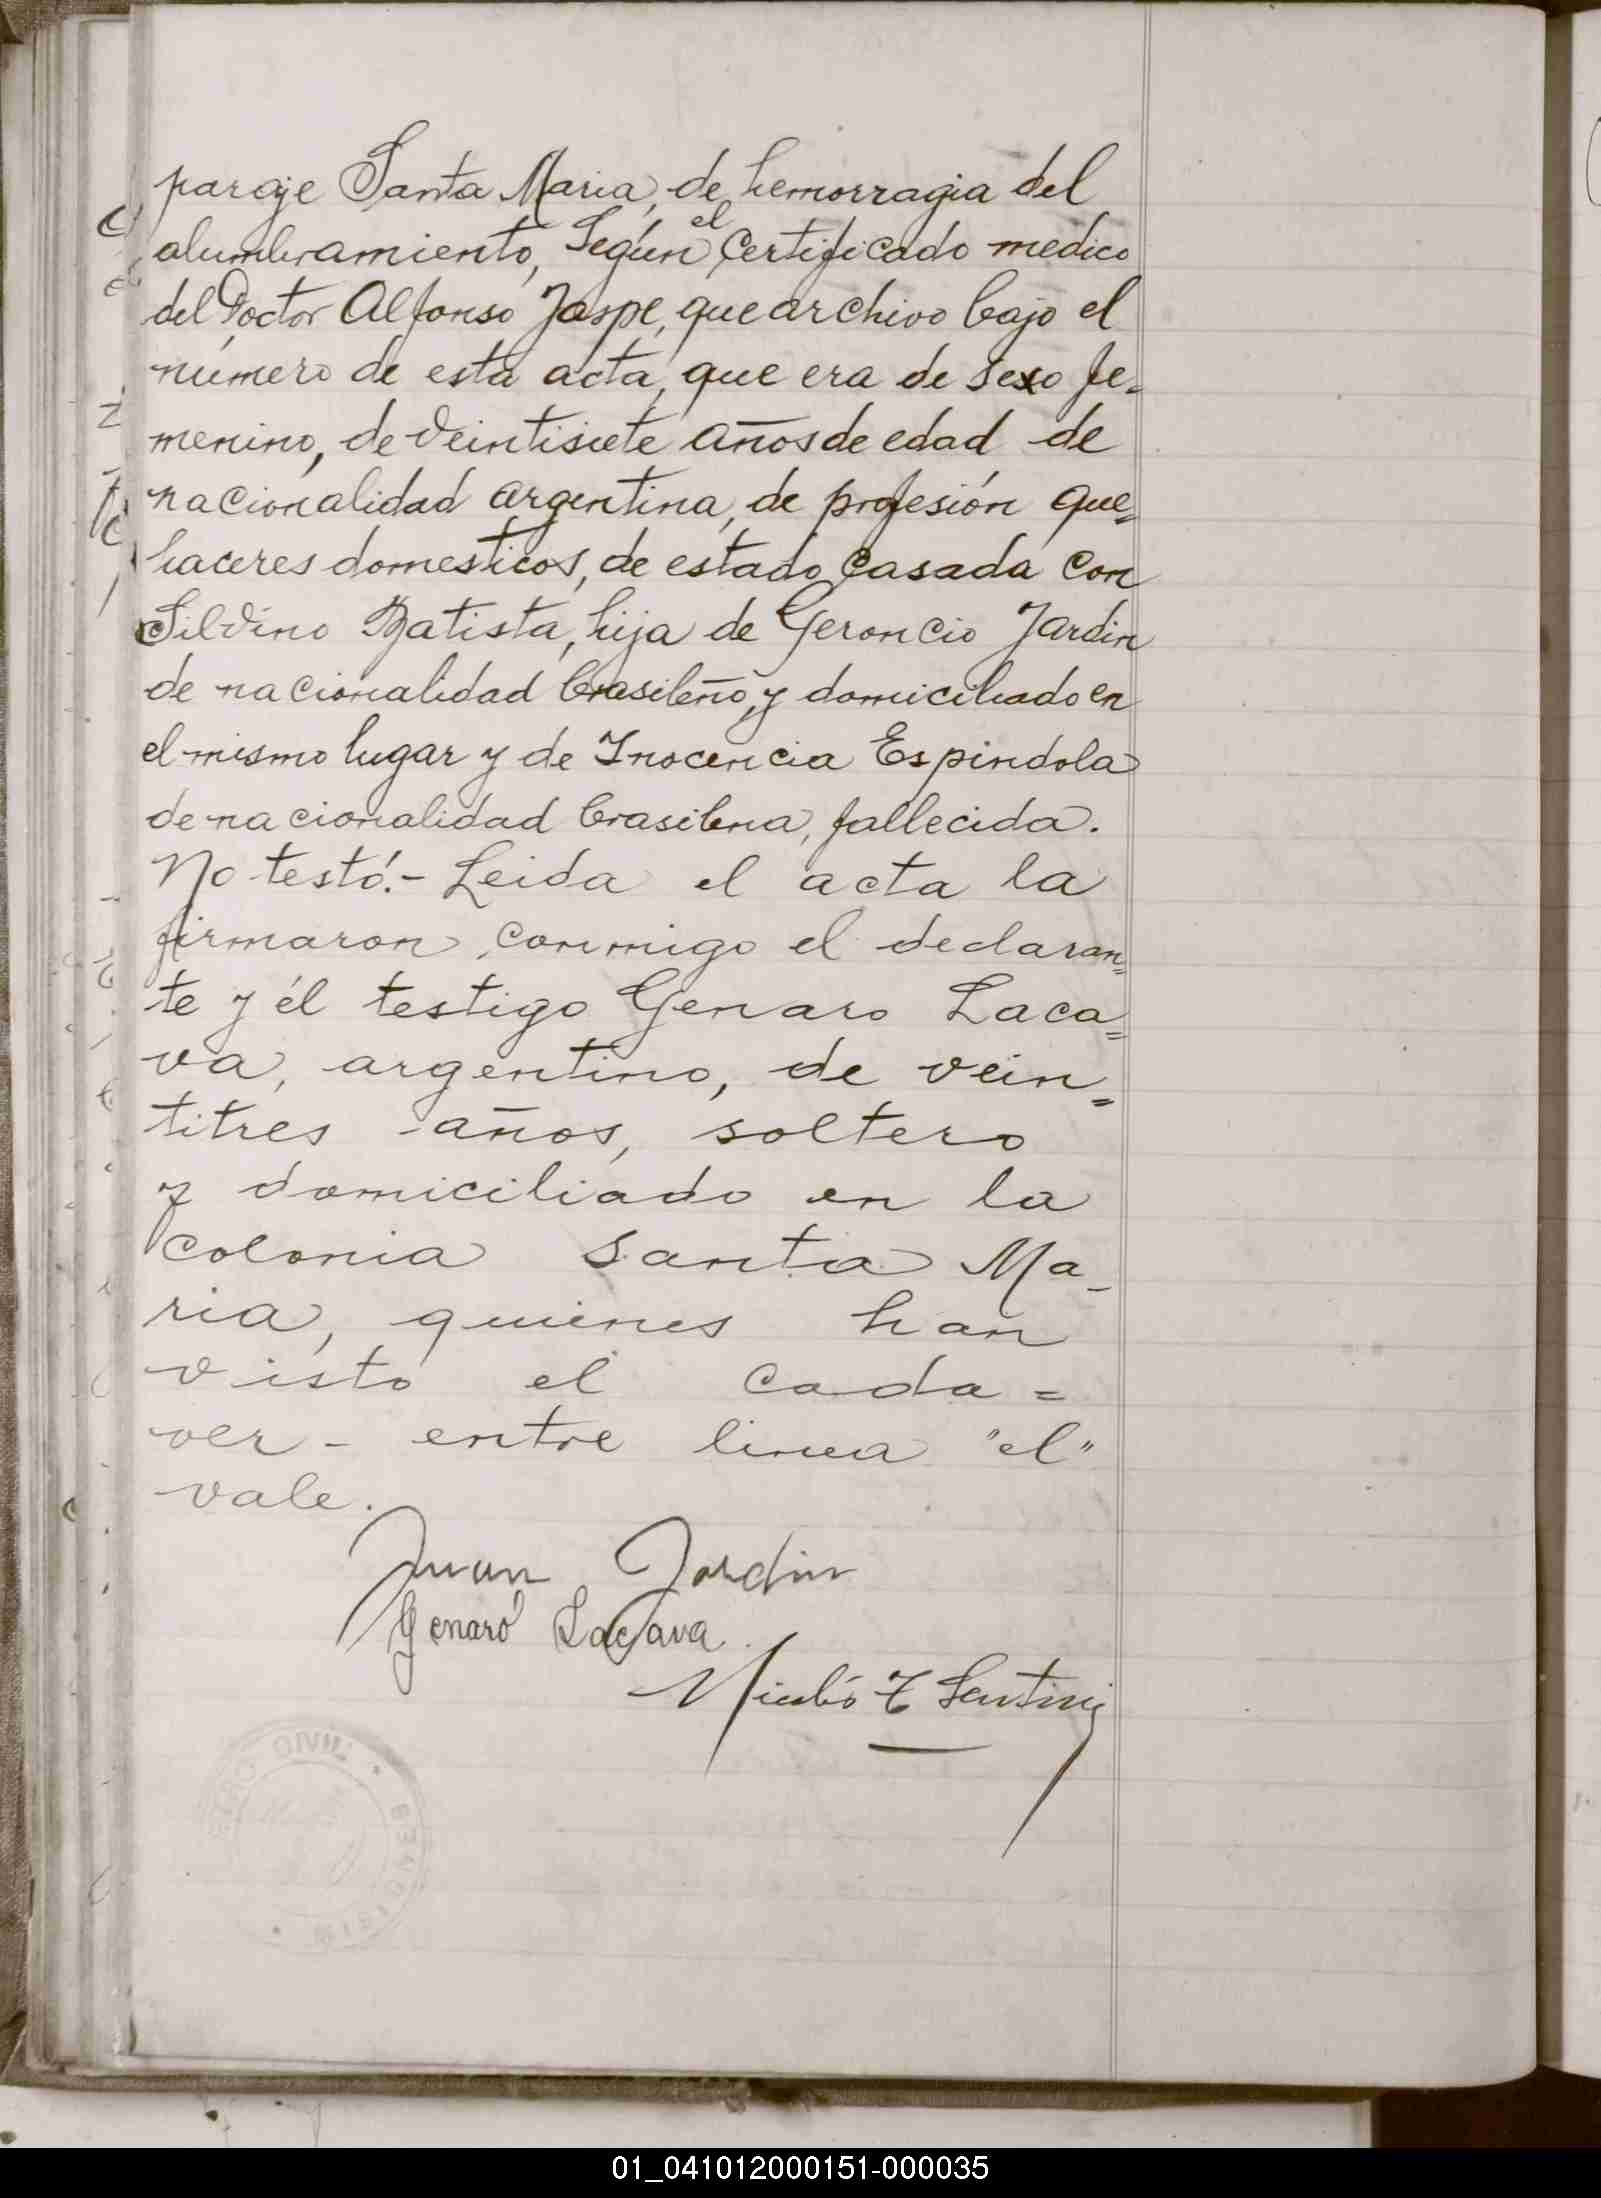 paraje Santa Maria, de hemorragia del
el
alumbramiento, Según certificado medico
del Doctor Alfonso Jaspe, que archivo bajo el
número de esta acta, que era de sexo fe-
menino, de veintisiete años de edad de
nacionalidad argentina, de profesión que=
haceres domesticos, de estado casada con
Silvino Batista, hija de Geroncio Jardin
de nacionalidad brasileño, y domiciliado en
el mismo lugar y de Inocencia Espindola
de nacionalidad brasilena, fallecida.
No testó.- Leida el acta la
firmaron conmigo el declaran=
te y él testigo Genaro Laca=
va, argentino, de vein=
titres años, soltero
y domiciliado en la
colonia Santa Ma-
ria, quienes han
visto el cada=
ver - entre linea "el"
vale.
Juan Jardin
Genaro Lacava
CIVIL
01_041012000151-000035